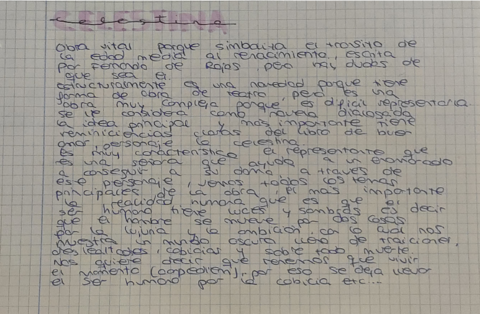 CELESTINA
Obra vital porque simboliza el transito de
la edad media al renacimiento, escrita
Por Fernando de Rojas pero hay dudas de
que sea el.
estructuralmente es una novedad porque tiene
forma de obra de teatro, pero es una
obra muy compleja porque es dificil representarla
se le considera como novela dialogada
la idea principal mas importante tiene
reminicencias claras del libro de buen
amor personaje la celestina
es muy caracteristico el representante que
es una señora que ayuda a un enamorado
a conseguir a su doma a traves de
ese personaje, vemos todos los temas
principales de la obra, el mas importante
la realidad humana que es que el
ser humano tiene luces y sombras es decir
que el hombre se mueve por dos cosas
por la lujuria y la ambicion con lo cual nos
muestra un mundo oscuro lleno de traiciones,
deslealtades, cobicias y sobre todo muerte
nos quiere decir que tenemos que vivir
el momento (carpediem), por eso se deja llevar
el ser humano por la cobicia etc...